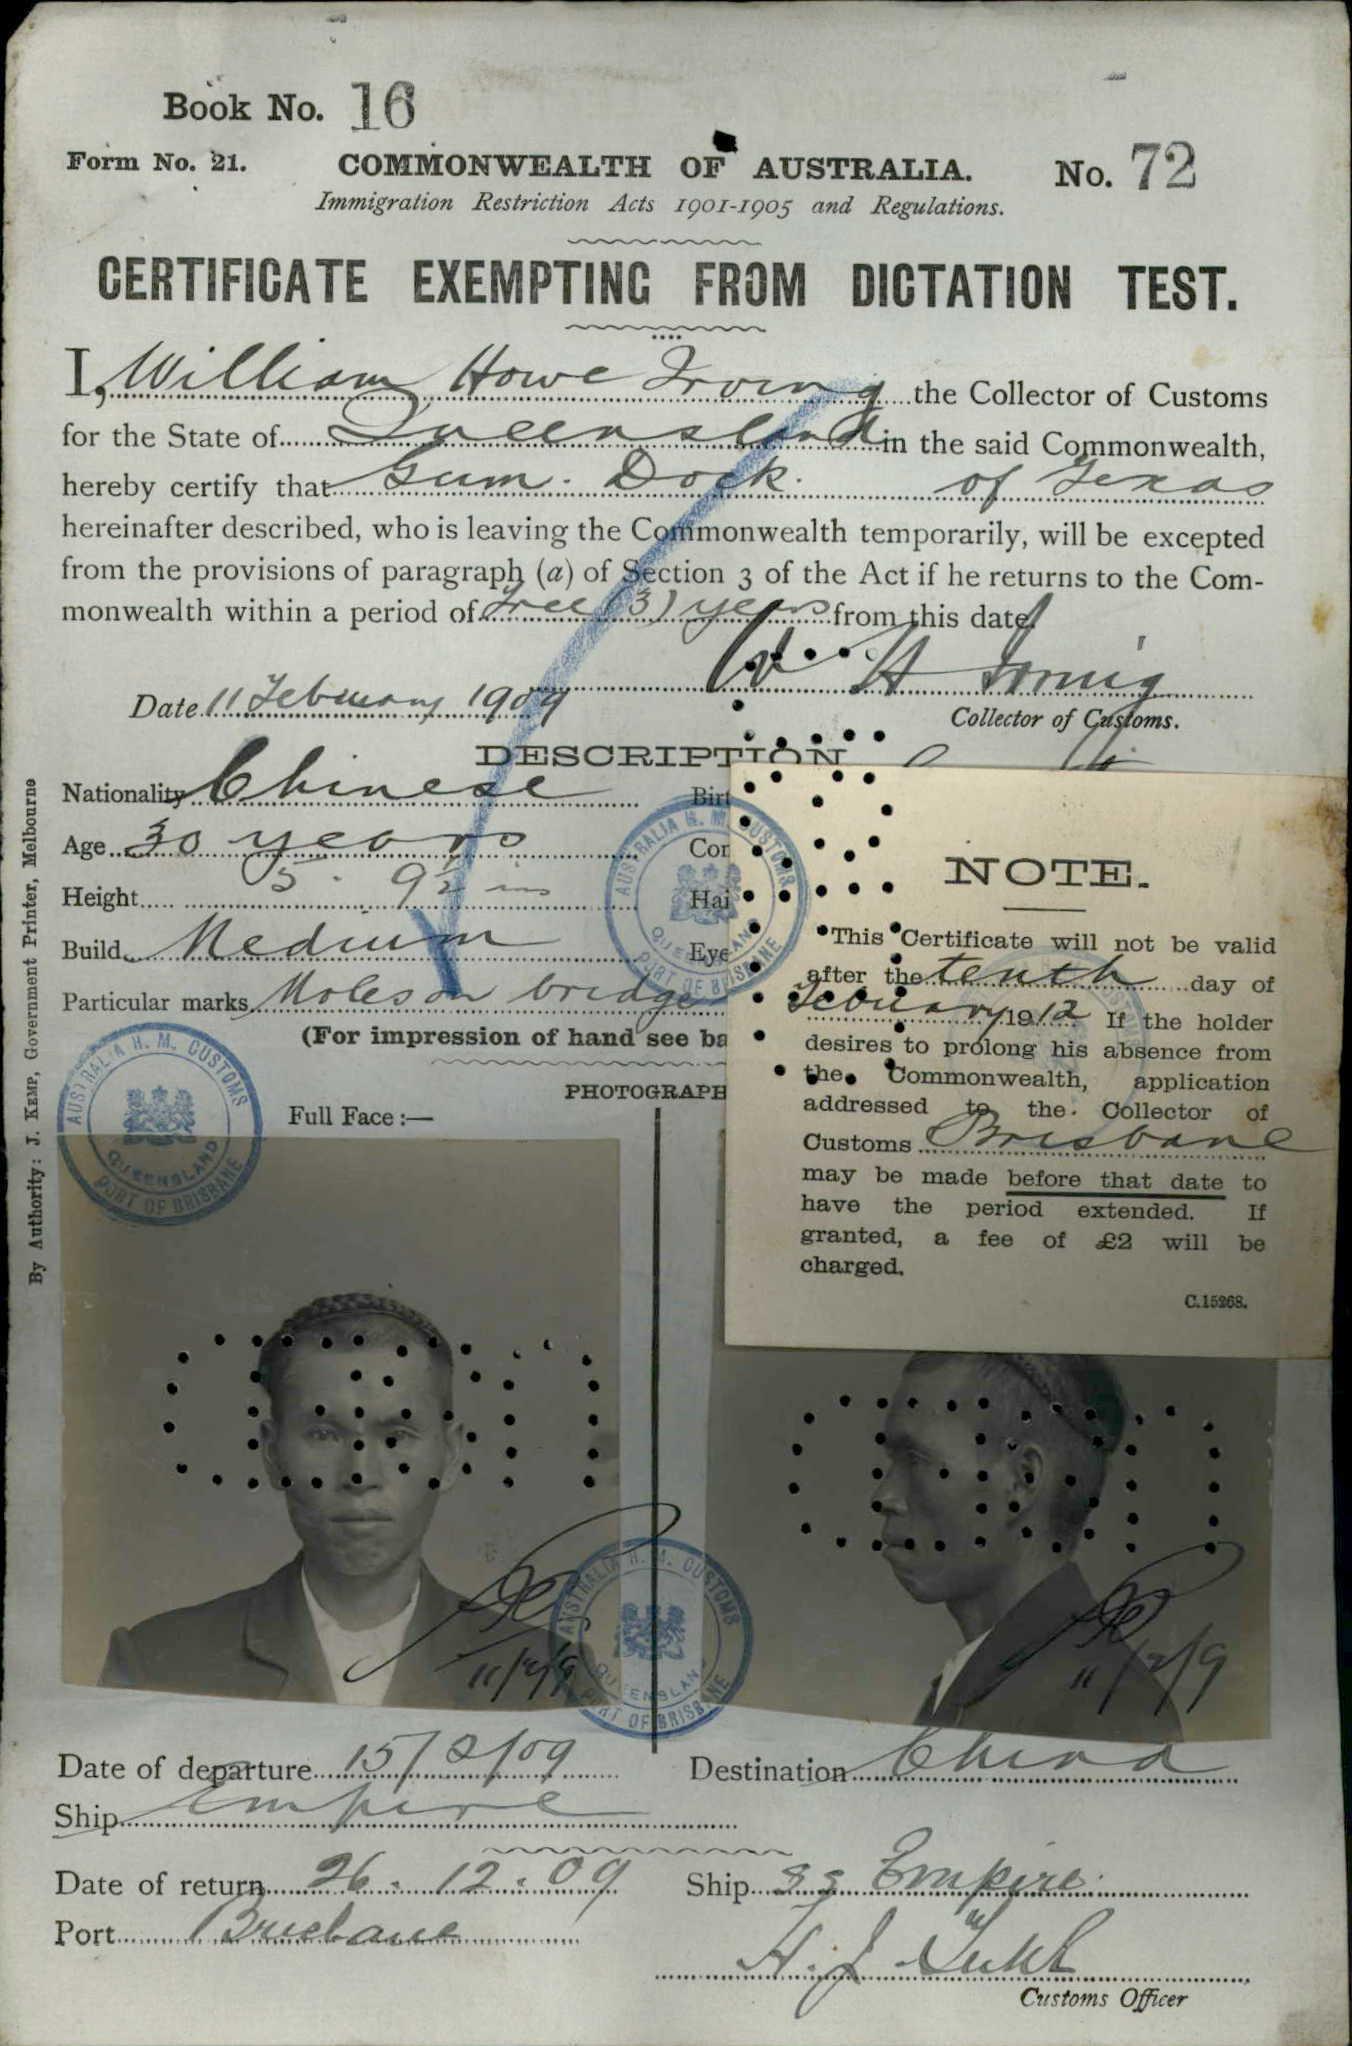 Book No. 16
Form No. 21.
COMMONWEALTH OF AUSTRALIA.
No. 72
Immigration Restriction Acts 1901-1905 and Regulations.
CERTIFICATE EXEMPTING FROM DICTATION TEST.
I, William Howe Irving the Collector of Customs
for the State of Queensland in the said Commonwealth,
hereby certify that Gum Dock of Texas
hereinafter described, who is leaving the Commonwealth temporarily, will be excepted
from the provisions of paragraph (a) of Section 3 of the Act if he returns to the Com-
monwealth within a period of Tree (3) years from this date.
W H Irving
Date 11 February 1909
Collector of Customs.
DESCRIPTION
Nationality Chinese
Age 30 years
Height 5 . 9½ ins
Build Medium
Particular marks Moles on bridge
(For impression of hand see ba
PHOTOGRAPH
Full Face:—
Birt
Hai
Eye
NOTE.
This Certificate will not be valid
after the tenth day of
February 1912 If the holder
desires to prolong his absence from
the Commonwealth, application
addressed to the Collector of
Customs Brisbane
may be made before that date to
have the period extended. If
granted, a fee of £2 will be
charged.
C.15268.
By Authority: J. KEMP, Government Printer, Melbourne
AUSTRALIA H. M. CUSTOMS
QUEENSLAND
PORT OF BRISBANE
AUSTRALIA H. M. CUSTOMS
QUEENSLAND
PORT OF BRISBANE
11/2/9
AUSTRALIA H. M. CUSTOMS
QUEENSLAND
PORT OF BRISBANE
11/2/9
Date of departure 15/2/09
Destination China
Ship Empire
Date of return 26.12.09
Ship SS Empire
Port Brisbane
H. J.
Customs Officer